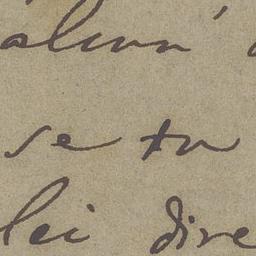 alcun'
se tu
lei dire